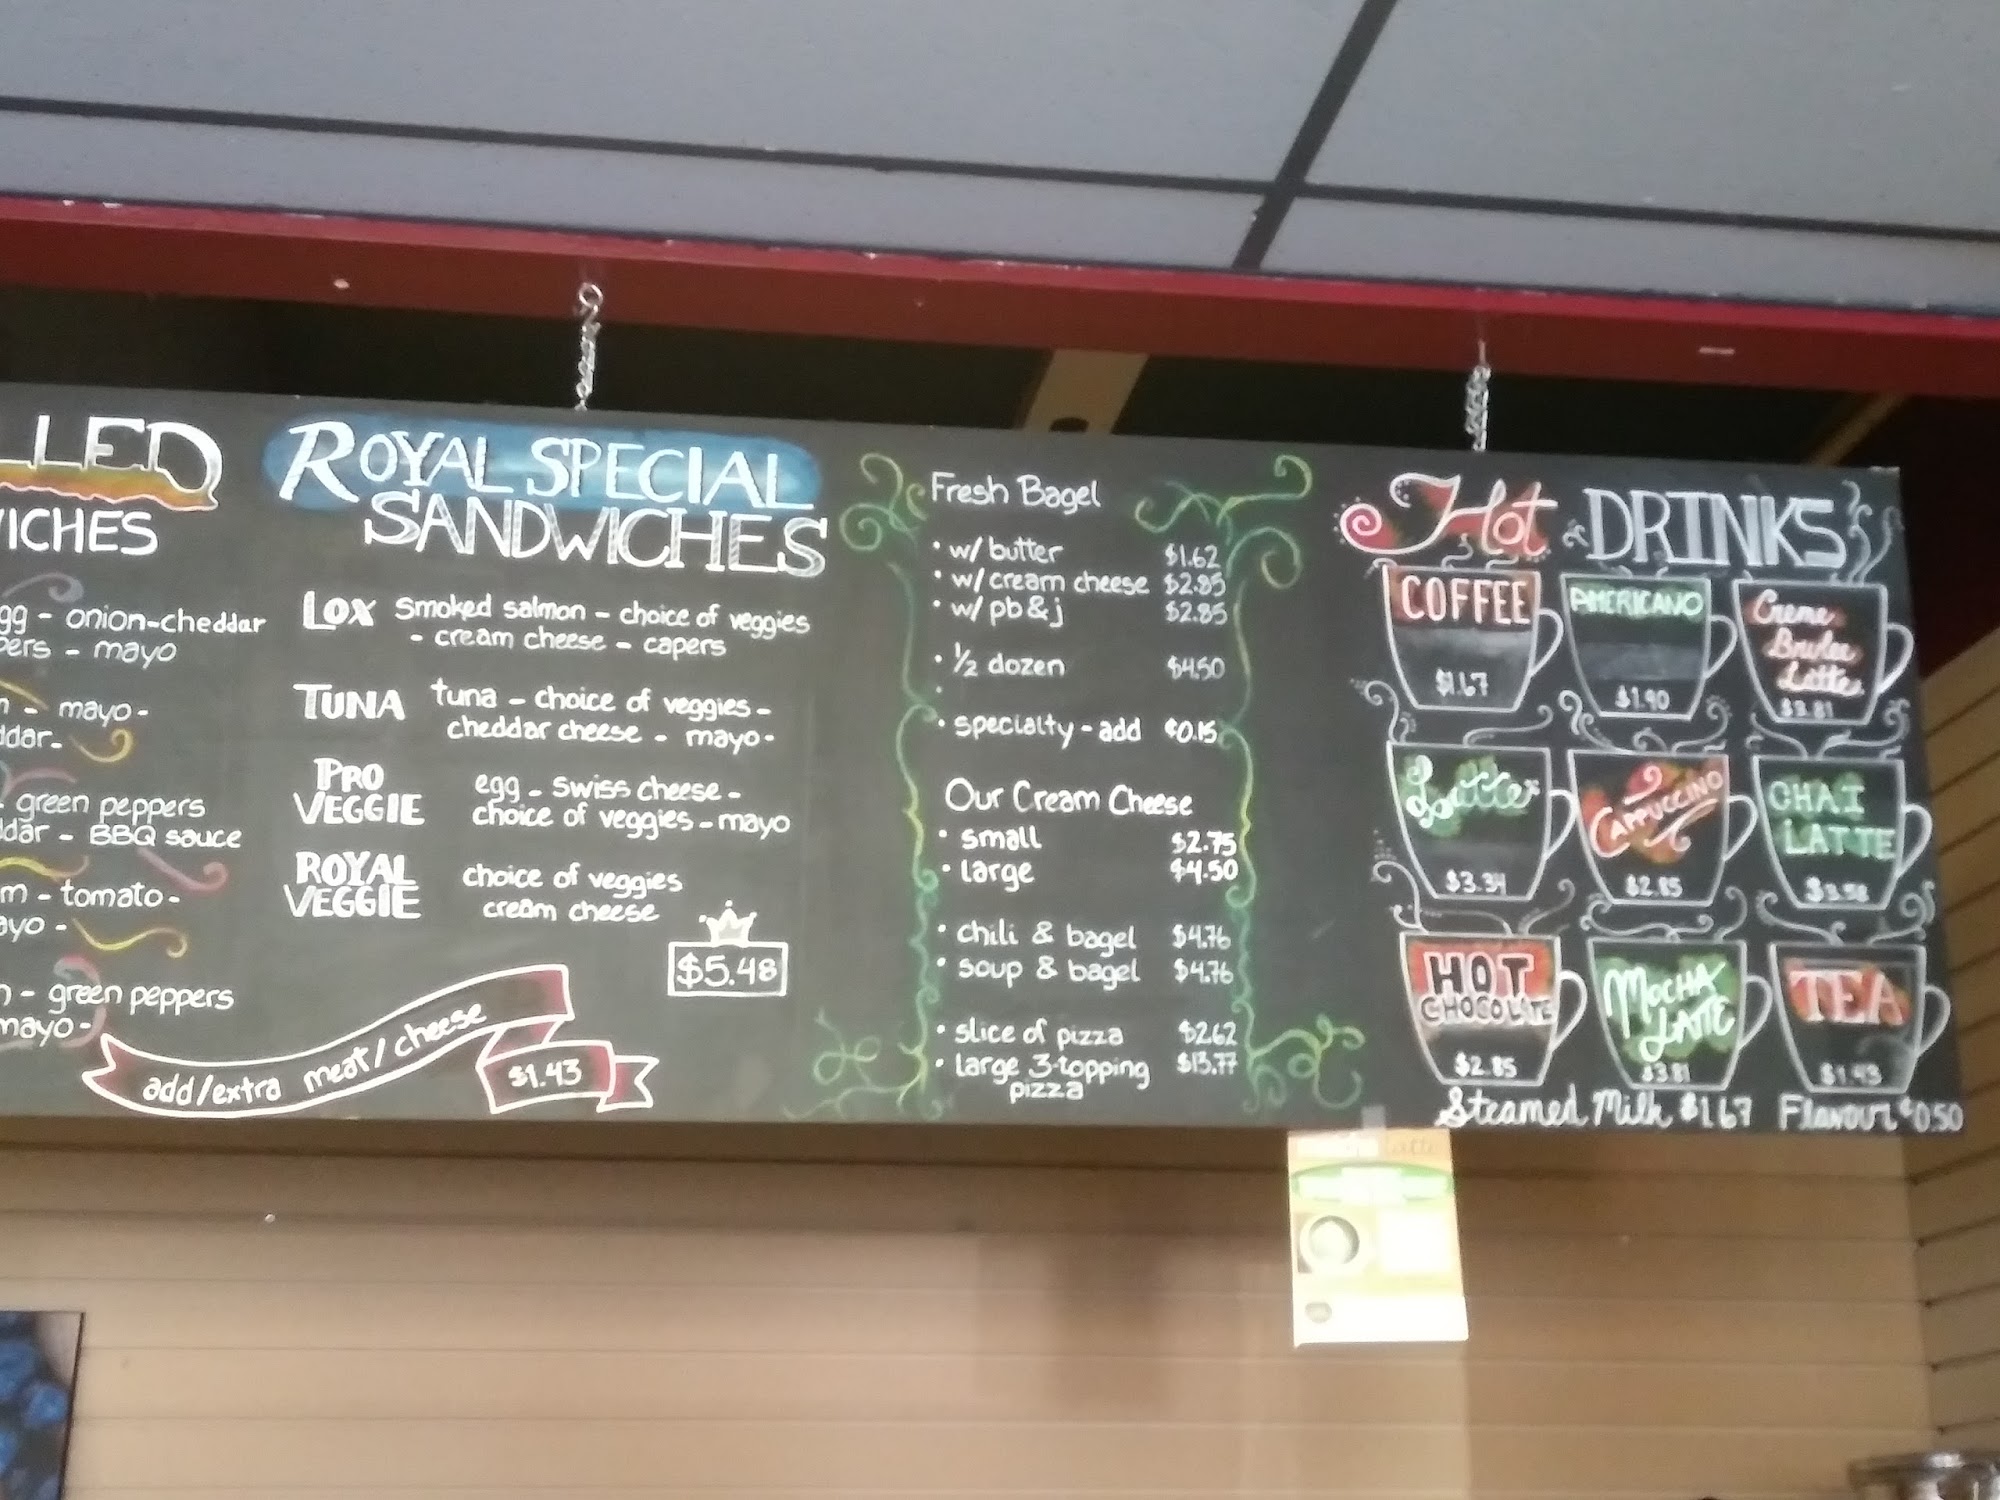 LLED
WICHES
gg - onion-cheddar
pers - mayo
- mayo -
ddar -
- green peppers
ddar - BBQ sauce
m - tomato -
ayo -
- green peppers
mayo -
ROYAL SPECIAL
SANDWICHES
LOX smoked salmon - choice of veggies
- cream cheese - capers
TUNA tuna - choice of veggies -
cheddar cheese - mayo -
PRO
VEGGIE
egg - swiss cheese -
choice of veggies - mayo
ROYAL
VEGGIE
choice of veggies
cream cheese
$5.48
add/extra meat/cheese
$1.43
Fresh Bagel
• w/ butter $1.62
• w/ cream cheese $2.85
• w/ pb & j $2.85
• ½ dozen $4.50
•
• specialty - add $0.15
Our Cream Cheese
• small $2.75
• large $4.50
• chili & bagel $4.76
• soup & bagel $4.76
• slice of pizza $2.62
• large 3-topping $13.77
pizza
Hot DRINKS
COFFEE
$1.67
AMERICANO
$1.90
Creme
Brulee
Latte
$3.81
Latte
$3.34
CAPPUCCINO
$2.85
CHAI
LATTE
$3.58
HOT
CHOCOLATE
$2.85
MOCHA
LATTE
$3.81
TEA
$1.43
Steamed Milk $1.67 Flavour $0.50
latte